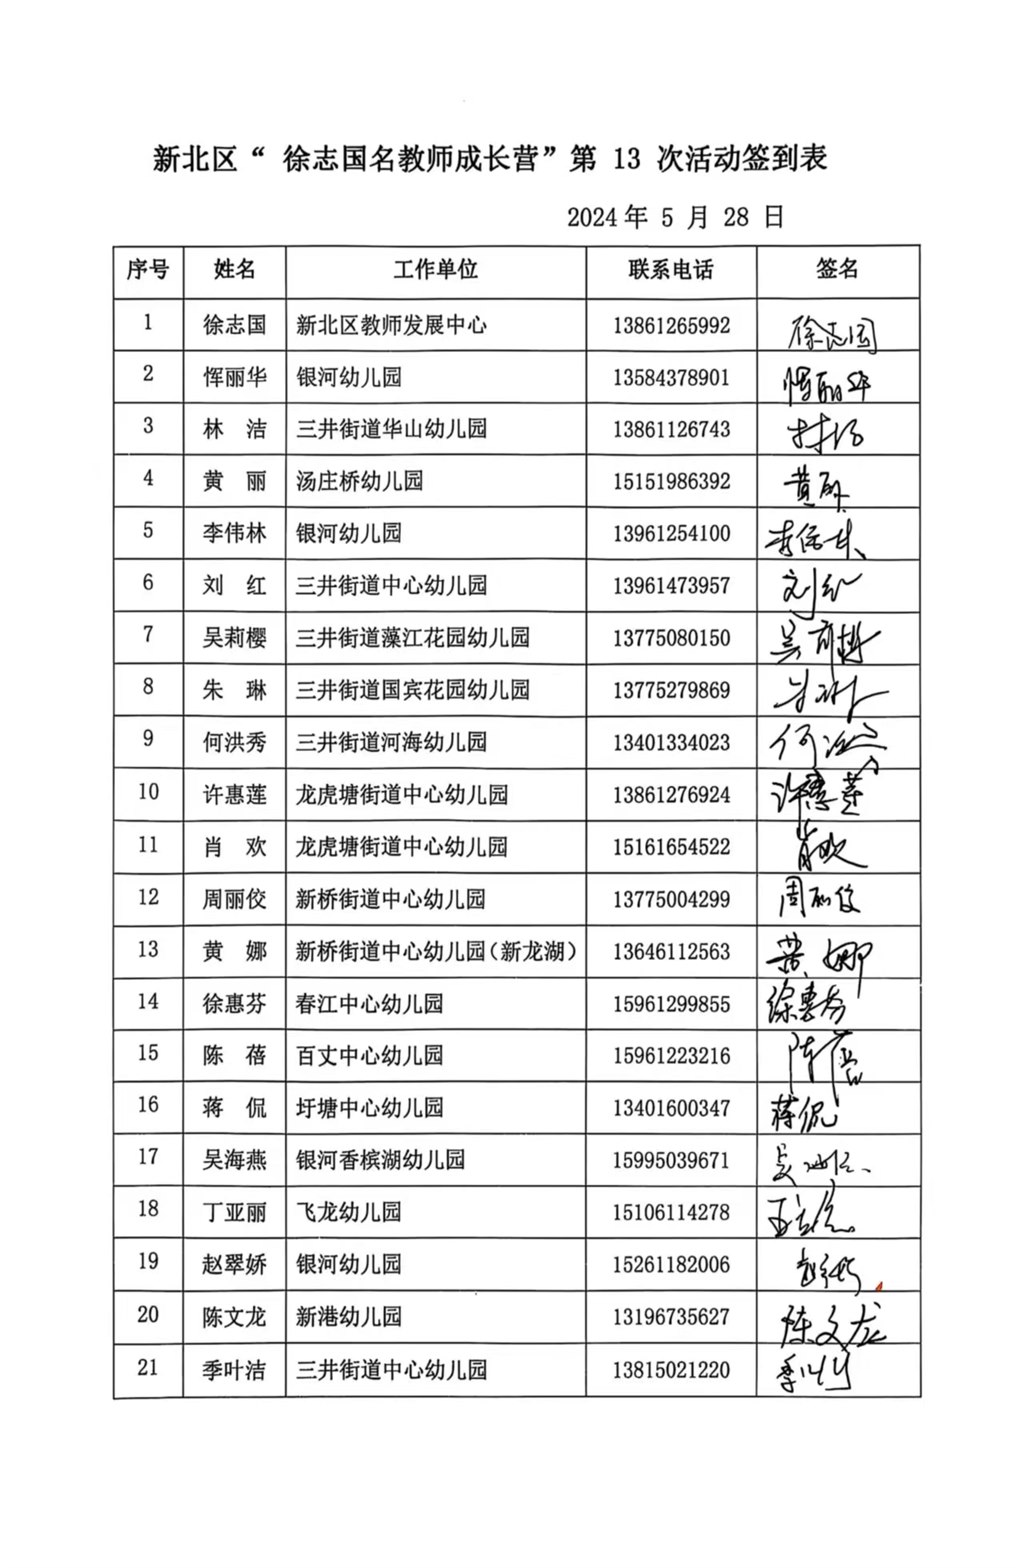 新北区“ 徐志国名教师成长营”第 13 次活动签到表
2024 年 5 月 28 日
序号 姓名 工作单位 联系电话 签名
1 徐志国 新北区教师发展中心 13861265992 徐志国
2 恽丽华 银河幼儿园 13584378901 恽丽华
3 林 洁 三井街道华山幼儿园 13861126743 林洁
4 黄 丽 汤庄桥幼儿园 15151986392 黄丽
5 李伟林 银河幼儿园 13961254100 李伟林
6 刘 红 三井街道中心幼儿园 13961473957 刘红
7 吴莉樱 三井街道藻江花园幼儿园 13775080150 吴莉樱
8 朱 琳 三井街道国宾花园幼儿园 13775279869 朱琳
9 何洪秀 三井街道河海幼儿园 13401334023 何洪秀
10 许惠莲 龙虎塘街道中心幼儿园 13861276924 许惠莲
11 肖 欢 龙虎塘街道中心幼儿园 15161654522 肖欢
12 周丽佼 新桥街道中心幼儿园 13775004299 周丽佼
13 黄 娜 新桥街道中心幼儿园（新龙湖） 13646112563 黄娜
14 徐惠芬 春江中心幼儿园 15961299855 徐惠芬
15 陈 蓓 百丈中心幼儿园 15961223216 陈蓓
16 蒋 侃 圩塘中心幼儿园 13401600347 蒋侃
17 吴海燕 银河香槟湖幼儿园 15995039671 吴海燕
18 丁亚丽 飞龙幼儿园 15106114278
19 赵翠娇 银河幼儿园 15261182006 赵翠娇
20 陈文龙 新港幼儿园 13196735627 陈文龙
21 季叶洁 三井街道中心幼儿园 13815021220 季叶洁